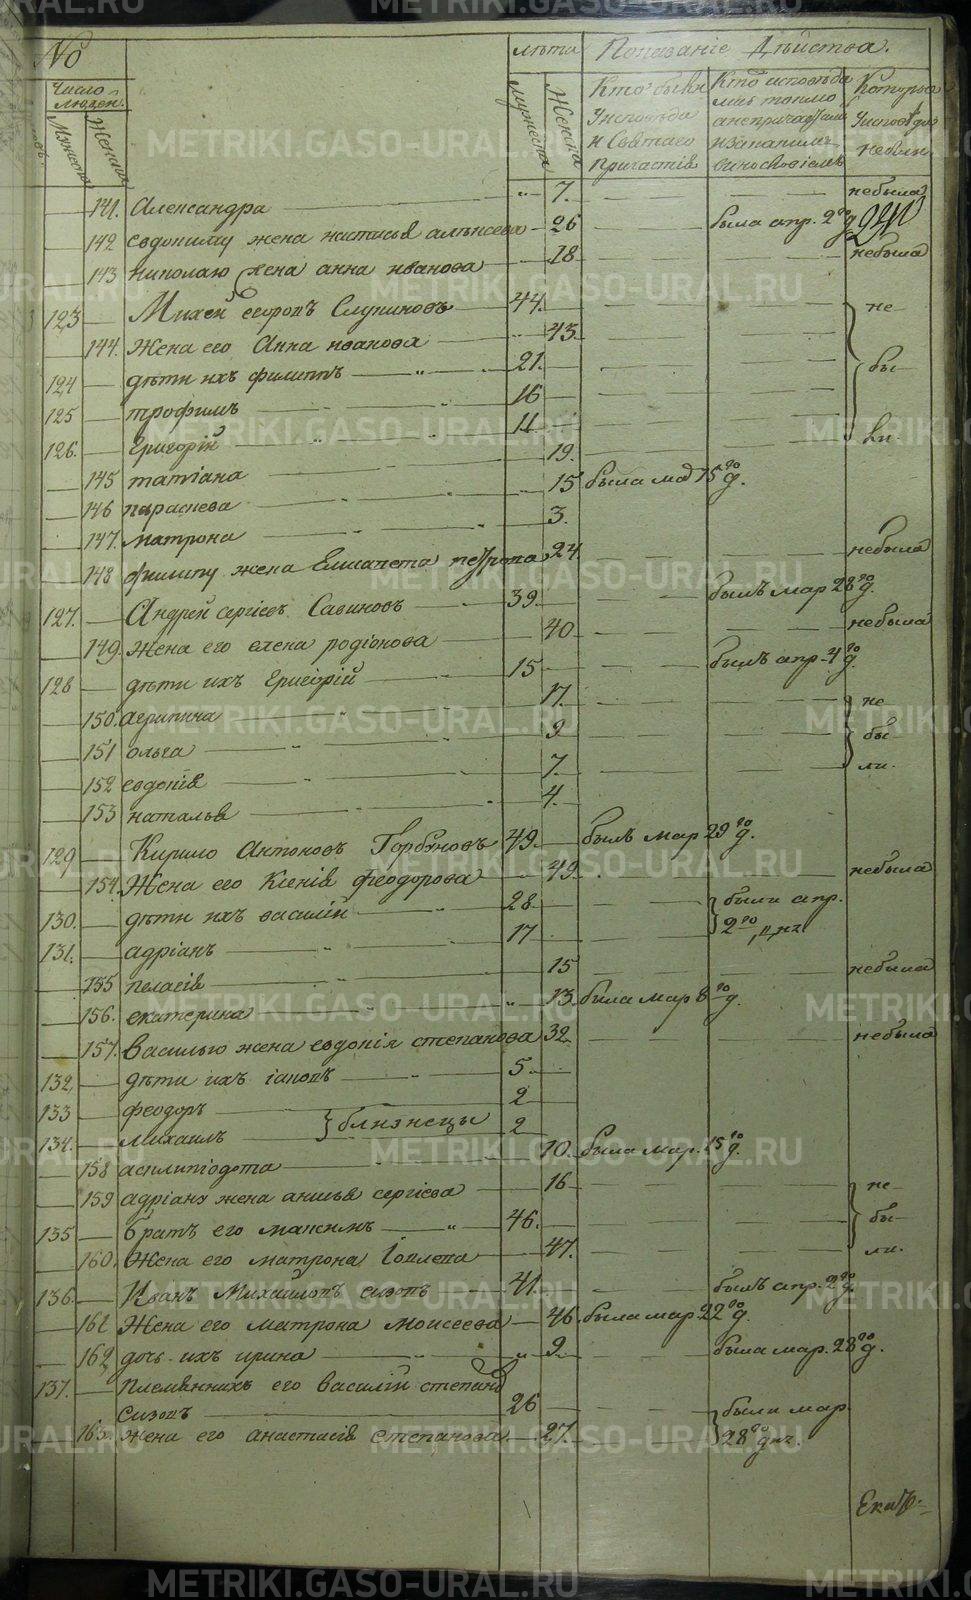 No лѣта Показаніе Дѣйства.
число людей.
мужеска женска
мужеска женска
Кто былъ у исповѣди и Святаго Причастія
Кто исповѣда
Которые у исповѣди небыли
141. Александра 7. небыла
142 евдокиму жена настасья алѣксеева 26 была апр. 2го д
241
143 николаю жена анна иванова 18 небыла
123 Михей егоровъ Слупиновъ 44. не
144. Жена его Анна иванова 43.
124 дѣти ихъ филиппъ 21. бы
125 трофимъ 16
126. Григорій 11 ли.
145 татіана 19.
146 параскева 15 была мар 15го д.
147. матрона 3.
148 филипу жена Елисавета петрова 24. небыла
127. Андрей сергіевъ Савиновъ 39. былъ мар 28го д.
149. Жена его елена родіонова 40 небыла
128 дѣти ихъ Григорій 15 былъ апр. 4го д.
150. агрипина 17. не
151 ольга 9 бы
152 евдокія 7. ли.
153 наталья 4.
129 Кирило Антоновъ Горбуновъ 49. былъ мар 29го д.
154. Жена его Ксенія феодорова 49. небыла
130. дѣти ихъ василій 28 были апр.
131. адріанъ 17 2го днѧ
155 пелагія 15 небыла
156. екатерина 13. была мар 8го д.
157. василью жена евдокія степанова 32 небыла
132. дѣти ихъ іаковъ 5.
133 феодоръ 2
134. михаилъ } близнецы 2
158 асклипіодота 10. была мар. 15го д.
159 адріану жена анисья сергіева 16 не
135 братъ его максимъ 46. бы
160. Жена его матрона 47. ли.
136. Иванъ Михайловъ сизовъ 41. былъ апр. 2го д.
161 Жена его матрона моисеева 46. была мар 22го д.
162 дочь ихъ ирина 9 была мар. 28го д.
137. племянникъ его василій степанъ
сизовъ 26 были мар
163. жена его анастасія степанова 27. 28го днъ.